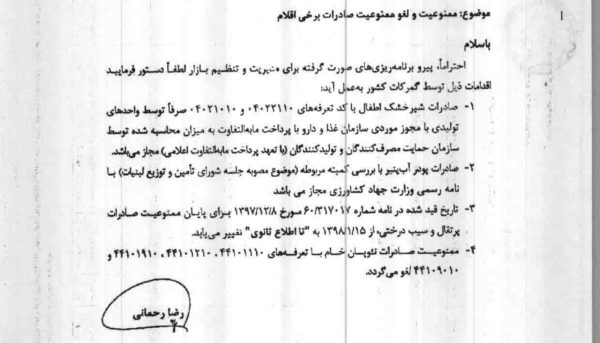 موضوع: ممنوعیت و لغو ممنوعیت صادرات برخی اقلام
باسلام
احتراماً، پیرو برنامه‌ریزی‌های صورت گرفته برای مدیریت و تنظیم بازار لطفاً دستور فرمایید
اقدامات ذیل توسط گمرکات کشور به‌عمل آید:
۱- صادرات شیرخشک اطفال با کد تعرفه‌های ۰۴۰۲۲۱۱۰ و ۰۴۰۲۱۰۱۰ صرفاً توسط واحدهای
تولیدی با مجوز موردی سازمان غذا و دارو با پرداخت مابه‌التفاوت به میزان محاسبه شده توسط
سازمان حمایت مصرف‌کنندگان و تولیدکنندگان (با تعهد پرداخت مابه‌التفاوت اعلامی) مجاز می‌باشد.
۲- صادرات پودر آب‌پنیر با بررسی کمیته مربوطه (موضوع مصوبه جلسه شورای تأمین و توزیع لبنیات) با
نامه رسمی وزارت جهاد کشاورزی مجاز می باشد
۳- تاریخ قید شده در نامه شماره ۶۰/۳۱۷۰۱۷ مورخ ۱۳۹۷/۱۲/۸ برای پایان ممنوعیت صادرات
پرتقال و سیب درختی، از ۱۳۹۸/۱/۱۵ به "تا اطلاع ثانوی" تغییر می‌یابد.
۴- ممنوعیت صادرات نئوپان خام با تعرفه‌های ۴۴۱۰۱۱۱۰، ۴۴۱۰۱۲۱۰، ۴۴۱۰۱۹۱۰ و
۴۴۱۰۹۰۱۰ لغو می‌گردد.
رضا رحمانی